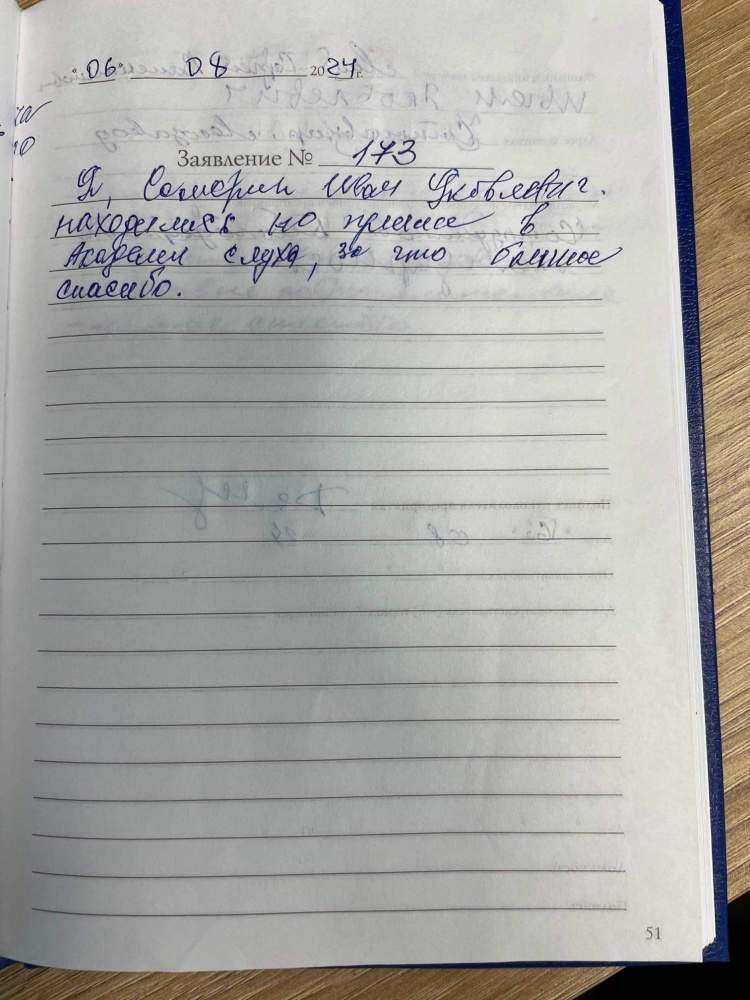 "06" 08 2024г.
Заявление № 173
Я, Самарин Иван Яковлевич.
находились на приеме в
Академии слуха, за что большое
спасибо.
51